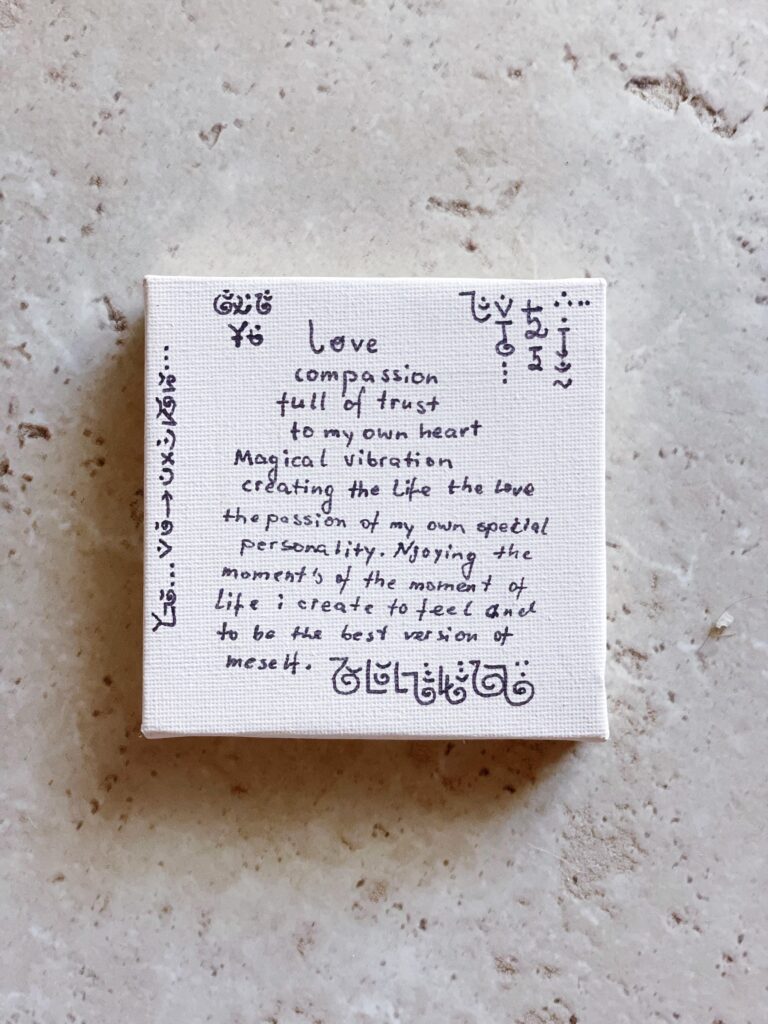 love
compassion
full of trust
to my own heart
Magical vibration
creating the life the love
the passion of my own special
personality. Njoying the
moment's of the moment of
life i create to feel and
to be the best version of
meself.